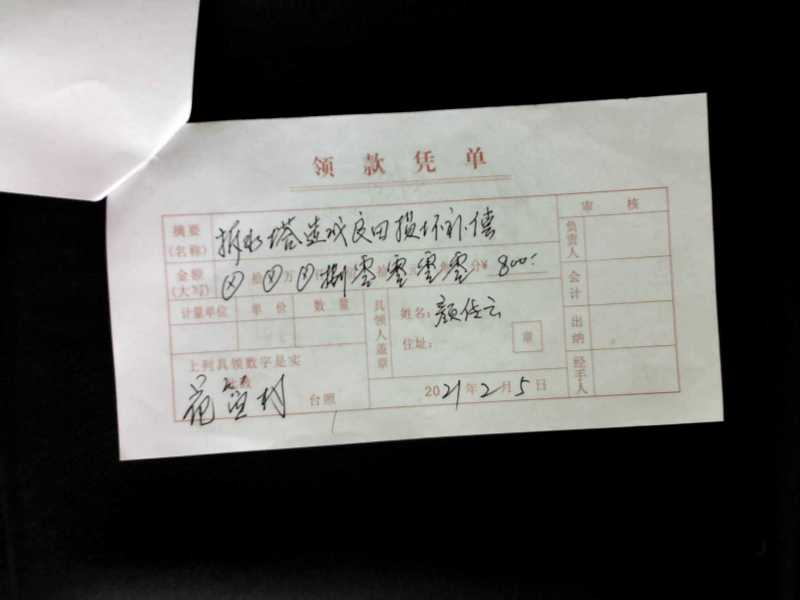 领款凭单
审核
摘要(名称) 拆水塔造成良田损坏补偿
金额(大写) ⊗ 拾 ⊗ 万 ⊗ 捌零零零零 分 ¥ 800
计量单位 单价 数量
具领人盖章
姓名:颜佳云
住址: 章
上列具领数字是实
此致
花 村 台照
2021年2月5日
负责人
会计
出纳
经手人